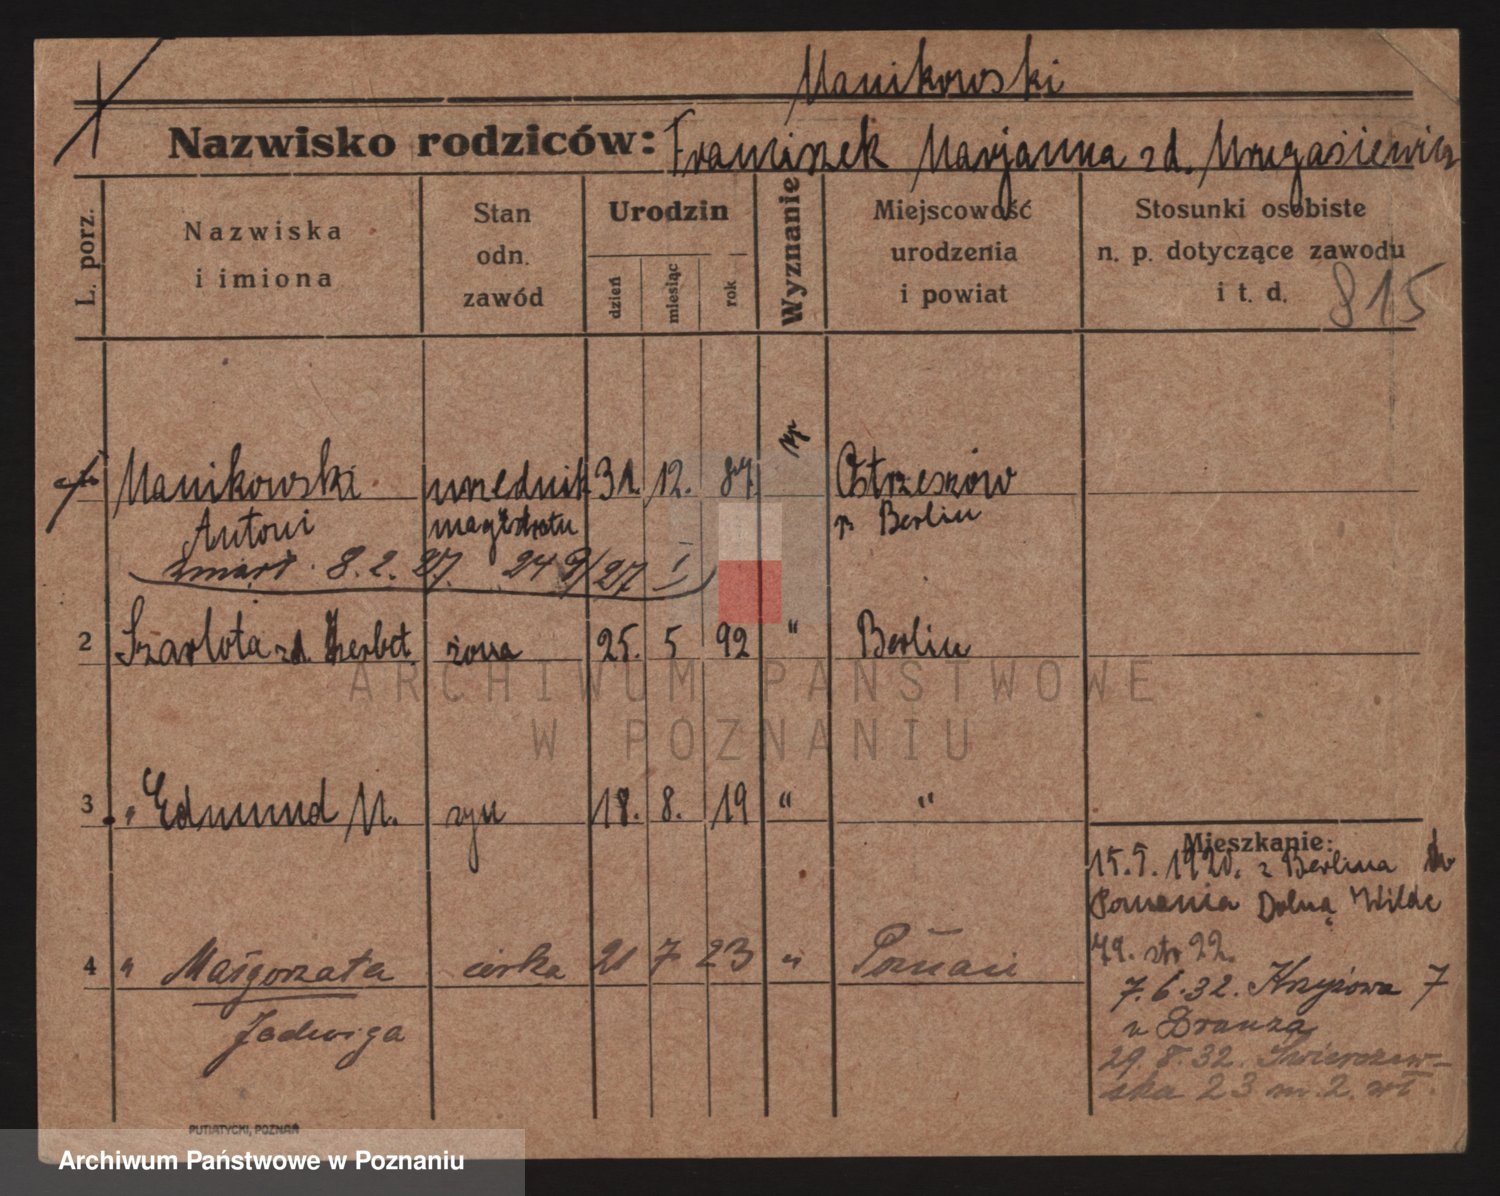 Manikowski
Nazwisko rodziców: Franciszek Marjanna zd.
L. porz.
Nazwiska
i imiona
Stan
odn.
zawód
Urodzin
dzień
miesiąc
rok
Wyznanie
Miejscowość
urodzenia
i powiat
Stosunki osobiste
n. p. dotyczące zawodu
i t. d.
815
Manikowski urzednik 31. 12. 87 Ostrzeszów
Antoni magistratu p. Berlin
zmarł 8.2.27. 24 9/27 I
2 Szarlota zd. żona 25. 5 92 " Berlin
ARCHIWUM PAŃSTWOWE
W POZNANIU
3 " Edmund M. syn 18. 8. 19 " "
Mieszkanie:
15.5.1920. z Berlina do
Poznania Dolna Wilda
79. str 22.
4 " Małgorzata córka 21 7 23 " Poznań
Jadwiga
7.6.32. Krzyżowa 7
u Brauza
29.8.32. Świerczew-
ska 23 m.2. wł.
PUTIATYCKI, POZNAŃ
Archiwum Państwowe w Poznaniu